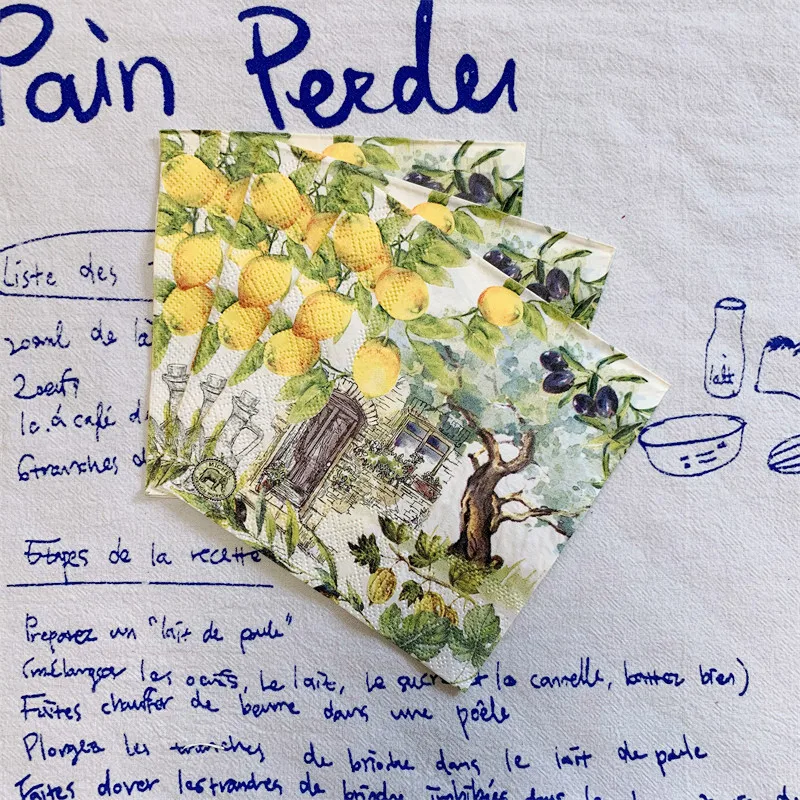 Pain Perdu
Liste des
200ml de la
2 oeufs
1c. à café d
6 tranches d
lait
Etapes de la recette
Preparez un "lait de poule"
(mélanger les oeufs, le lait, le sucre et la cannelle, battez bien)
Faites chauffer de beurre dans une poêle
Plongez les tranches de brioche dans le lait de poule
Faites dorer les tranches de brioche imbibées dans le